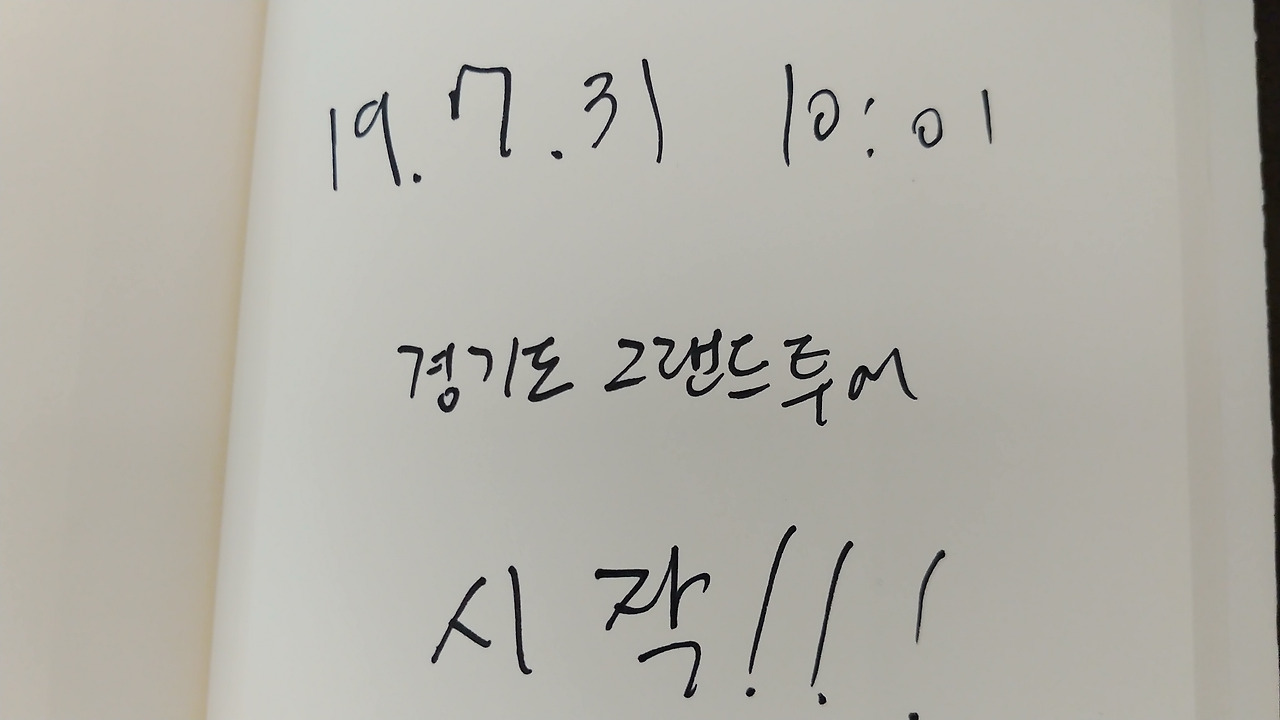 19.7.31 10:01
경기도 그랜드투어
시작!!!